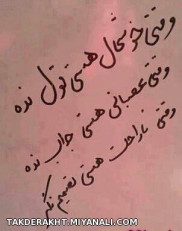 وقتی خوشحال هستی قول نده
وقتی عصبانی هستی جواب نده
وقتی ناراحت هستی تصمیم نگیر
TAKDERAKHT.MIYANALI.COM